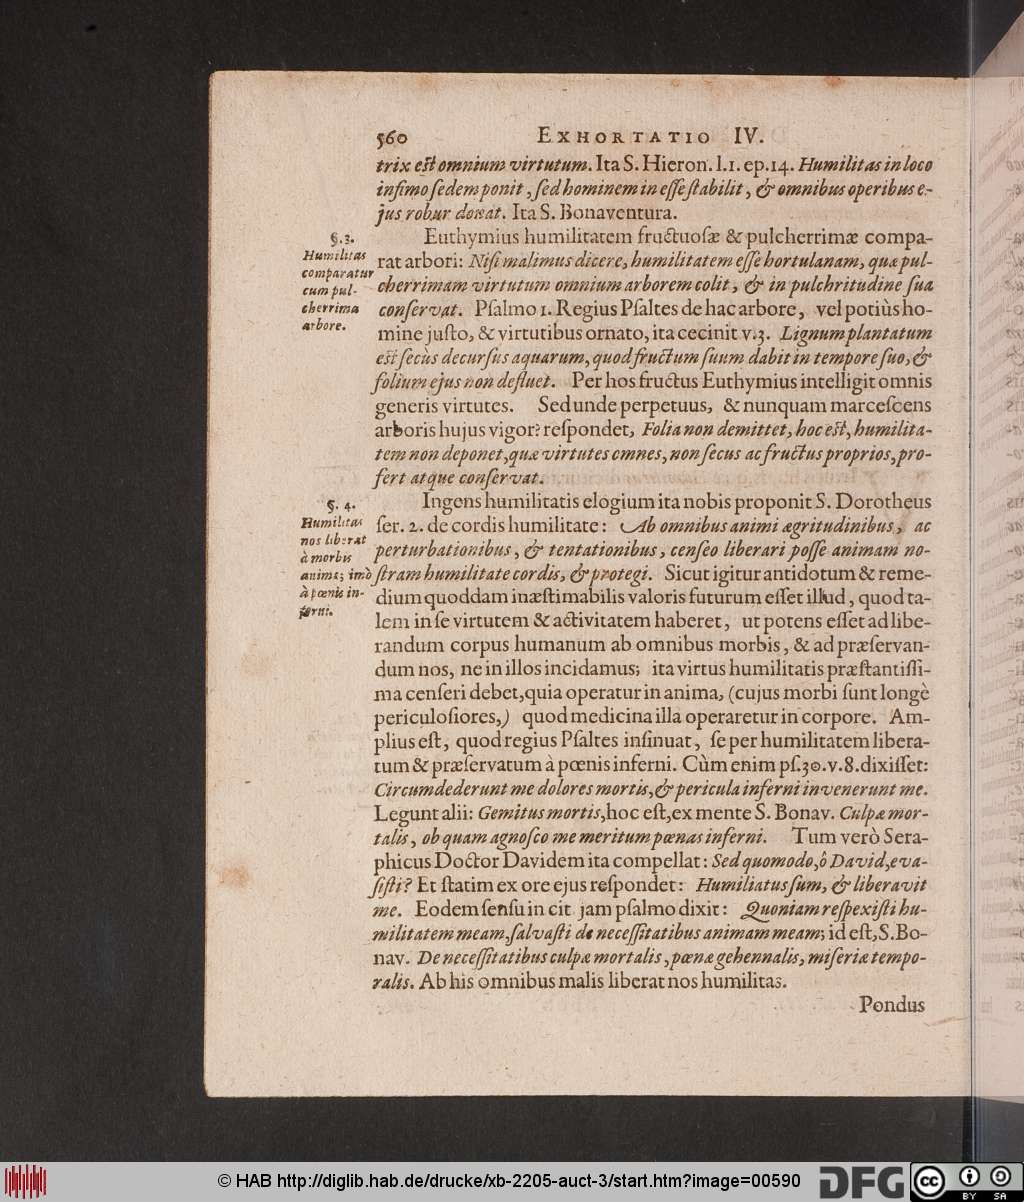 560 EXHORTATIO IV.
trix est omnium virtutum. Ita S. Hieron. l.1. ep.14. Humilitas in loco
infimo ſedem ponit, ſed hominem in eſſe ſtabilit, & omnibus operibus e-
jus robur donat. Ita S. Bonaventura.
§.3.
Humilitas
comparatur
cum pul-
cherrima
arbore.
Euthymius humilitatem fructuoſæ & pulcherrimæ compa-
rat arbori: Niſi malimus dicere, humilitatem eſſe hortulanam, quæ pul-
cherrimam virtutum omnium arborem colit, & in pulchritudine ſua
conſervat. Pſalmo 1. Regius Pſaltes de hac arbore, vel potiùs ho-
mine juſto, & virtutibus ornato, ita cecinit v.3. Lignum plantatum
est ſecùs decurſùs aquarum, quod fructum ſuum dabit in tempore ſuo, &
folium ejus non defluet. Per hos fructus Euthymius intelligit omnis
generis virtutes. Sed unde perpetuus, & nunquam marceſcens
arboris hujus vigor? reſpondet, Folia non demittet, hoc est, humilita-
tem non deponet, quæ virtutes omnes, non ſecus ac fructus proprios, pro-
fert atque conſervat.
§. 4.
Humilitas
nos liberat
à morbis
animæ; imò
à pœnis in-
ferni.
Ingens humilitatis elogium ita nobis proponit S. Dorotheus
ſer. 2. de cordis humilitate: Ab omnibus animi ægritudinibus, ac
perturbationibus, & tentationibus, cenſeo liberari poſſe animam no-
ſtram humilitate cordis, & protegi. Sicut igitur antidotum & reme-
dium quoddam inæſtimabilis valoris futurum eſſet illud, quod ta-
lem in ſe virtutem & activitatem haberet, ut potens eſſet ad libe-
randum corpus humanum ab omnibus morbis, & ad præſervan-
dum nos, ne in illos incidamus; ita virtus humilitatis præſtantiſſi-
ma cenſeri debet, quia operatur in anima, (cujus morbi ſunt longè
periculoſiores,) quod medicina illa operaretur in corpore. Am-
plius eſt, quod regius Pſaltes inſinuat, ſe per humilitatem libera-
tum & præſervatum à pœnis inferni. Cùm enim pſ.30.v.8. dixiſſet:
Circumdederunt me dolores mortis, & pericula inferni invenerunt me.
Legunt alii: Gemitus mortis, hoc eſt, ex mente S. Bonav. Culpæ mor-
talis, ob quam agnoſco me meritum pœnas inferni. Tum verò Sera-
phicus Doctor Davidem ita compellat: Sed quomodo, ô David, eva-
ſiſti? Et ſtatim ex ore ejus reſpondet: Humiliatus ſum, & liberavit
me. Eodem ſenſu in cit jam pſalmo dixit: Quoniam reſpexiſti hu-
militatem meam, ſalvaſti de neceſſitatibus animam meam; id eſt, S. Bo-
nav. De neceſſitatibus culpæ mortalis, pœnæ gehennalis, miſeriæ tempo-
ralis. Ab his omnibus malis liberat nos humilitas.
Pondus
© HAB http://diglib.hab.de/drucke/xb-2205-auct-3/start.htm?image=00590
DFG
cc
BY SA